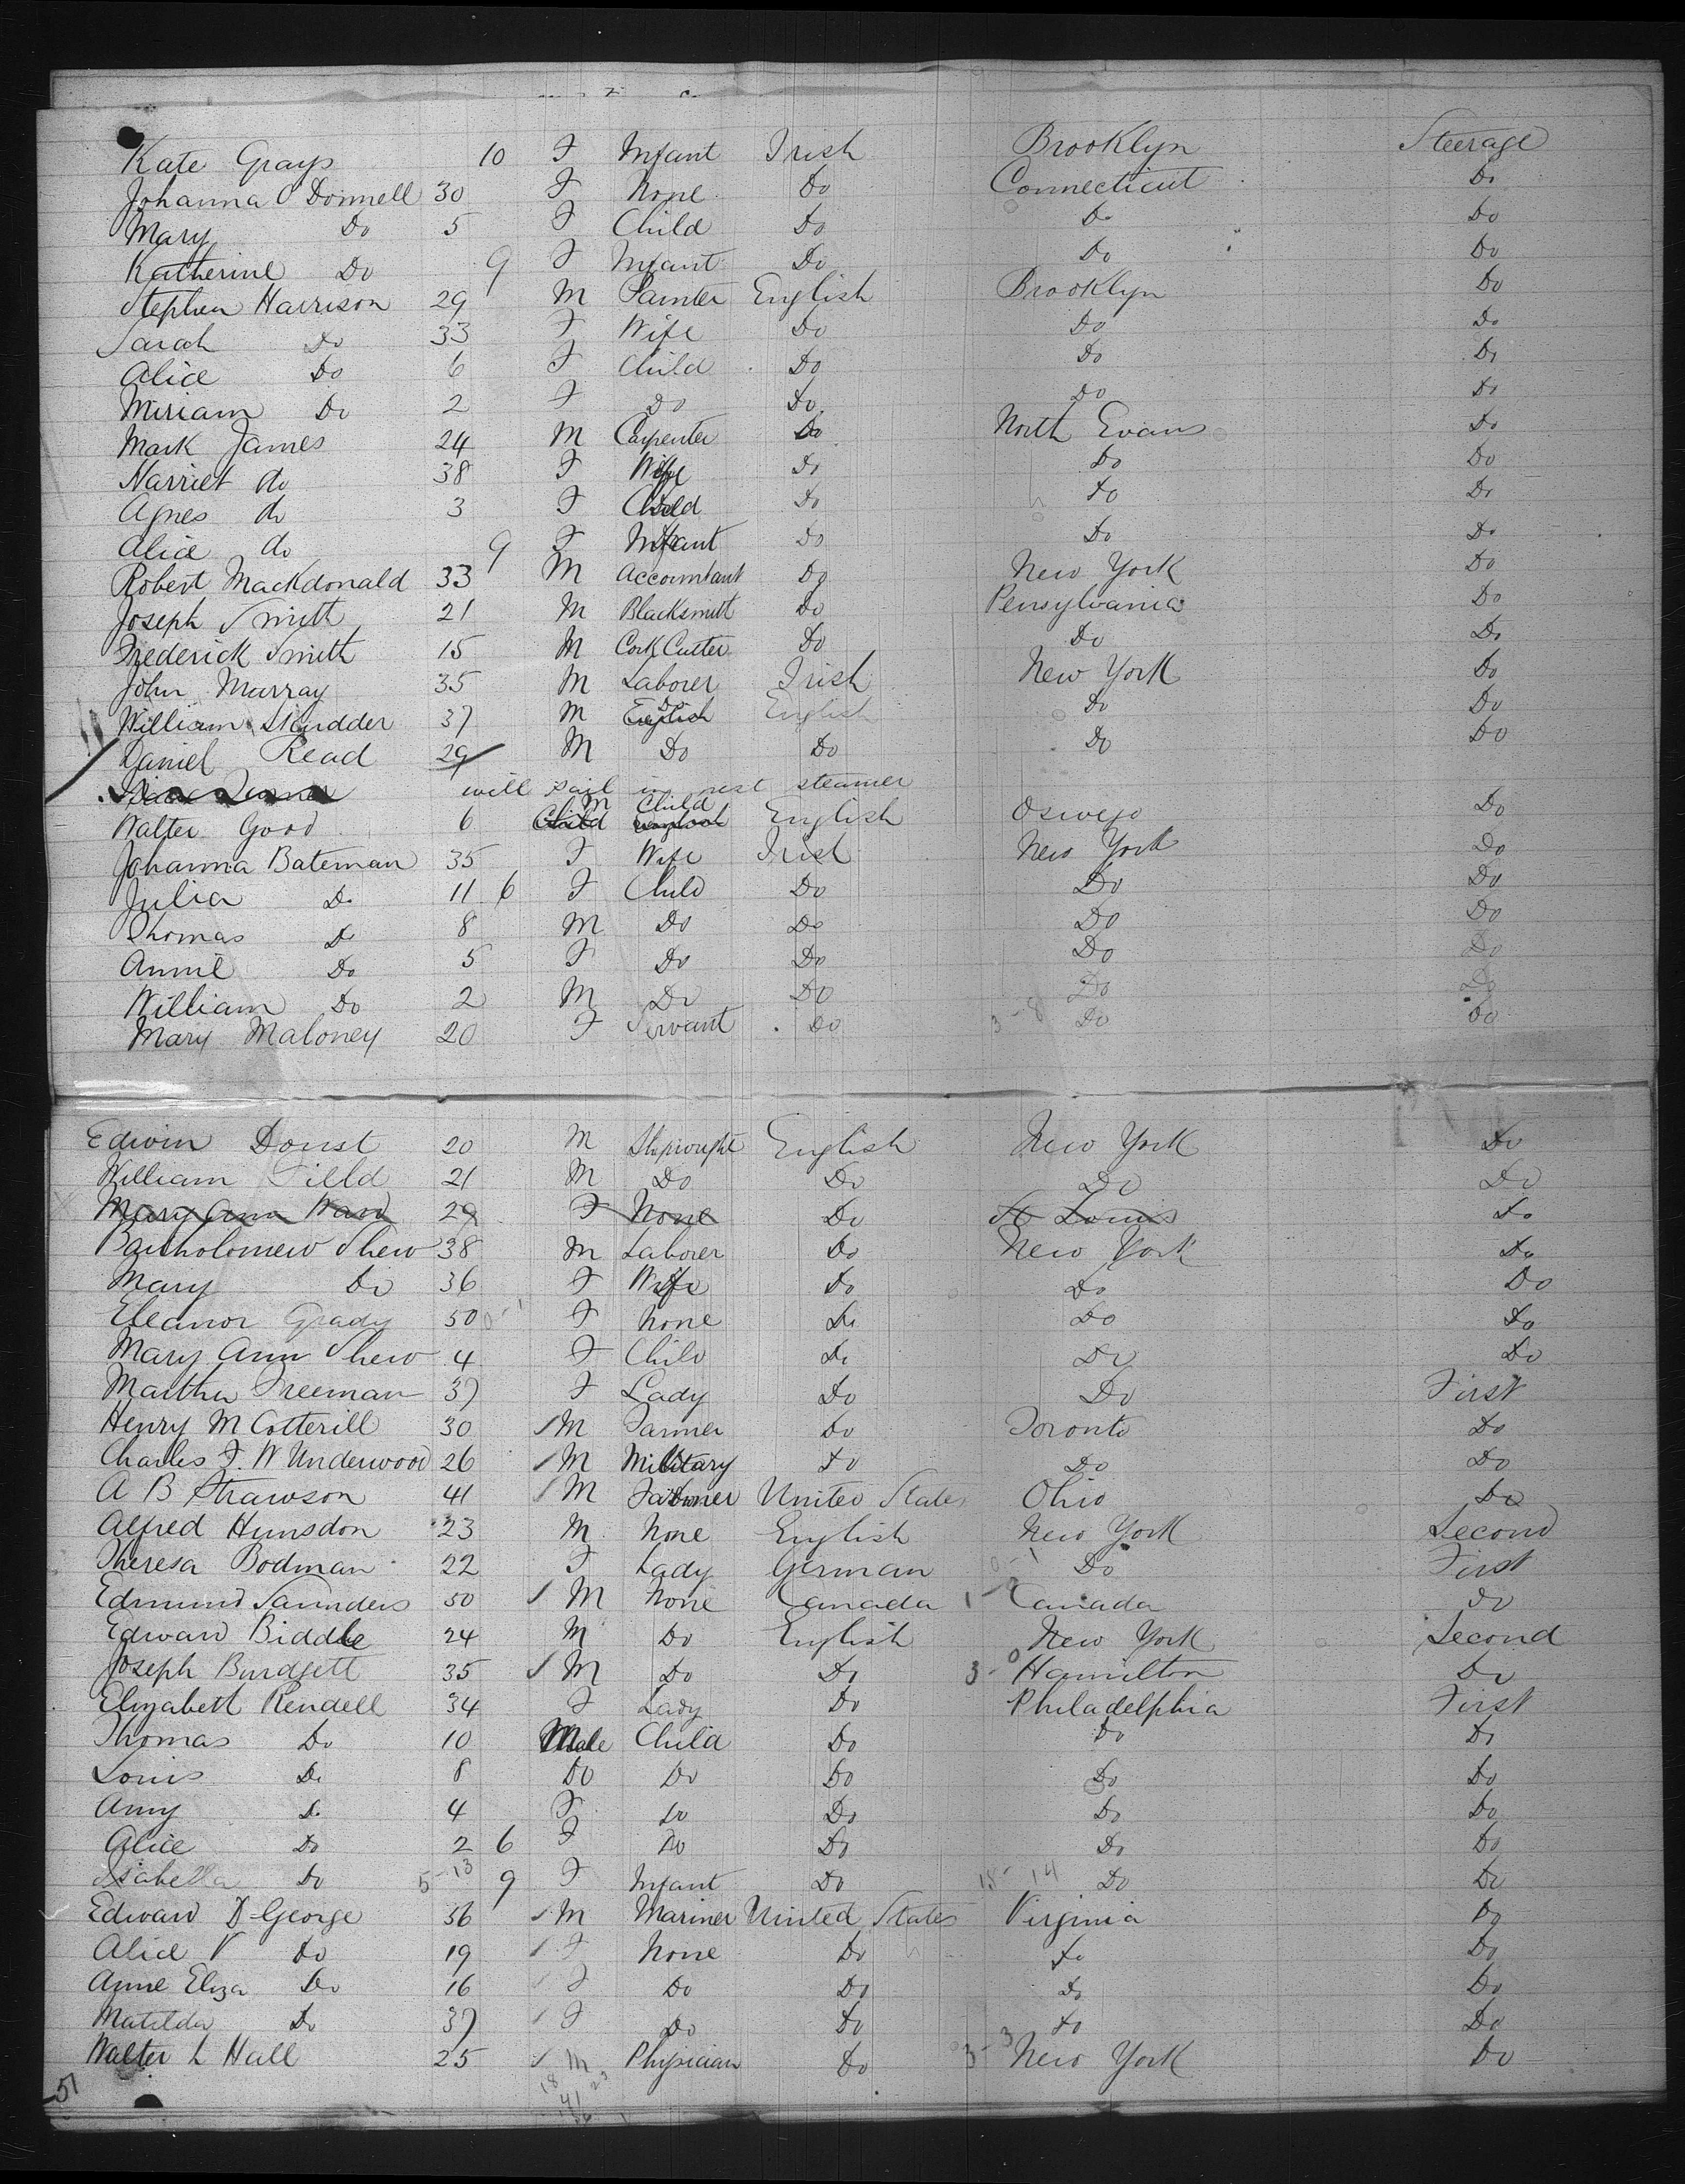 Kate Grays 10 F Infant Irish Brooklyn Steerage
Johanna O Donnell 30 F None Do Connecticut Do
Mary Do 5 F Child Do Do Do
Katherine Do 9 F Infant Do Do Do
Stephen Harrison 29 M Painter English Brooklyn Do
Sarah Do 33 F Wife Do Do Do
Alice Do 6 F Child Do Do Do
Miriam Do 2 F Do Do Do Do
Mark James 24 M Carpenter Do North Evans Do
Harriet do 38 F Wife Do Do Do
Agnes do 3 F Child Do Do Do
Alice do 9 F Infant Do Do Do
Robert Mackdonald 33 M Accountant Do New York Do
Joseph Smith 21 M Blacksmith Do Pensylvania Do
Frederick Smith 15 M Cork Cutter Do Do Do
John Murray 35 M Laborer Irish New York Do
William Skudder 37 M Do English Do Do
Daniel Read 29 M Do Do Do Do
will sail in next steamer
Walter Good 6 M Child English Oswego Do
Johanna Bateman 35 F Wife Irish New York Do
Julia Do 11 6 F Child Do Do Do
Thomas Do 8 M Do Do Do Do
Annie Do 5 F Do Do Do Do
William Do 2 M Do Do Do Do
Mary Maloney 20 F Servant Do 3-8 Do Do
Edwin Doust 20 M Shipwright English New York Do
William Field 21 M Do Do Do Do
Mary Ann Ward 29 F None Do St Louis Do
Bartholomew Shew 38 M Laborer Do New York Do
Mary Do 36 F Wife Do Do Do
Eleanor Grady 50 F None Do Do Do
Mary Ann Shew 4 F Child Do Do Do
Martha Freeman 37 F Lady Do Do First
Henry M Cotterill 30 M Farmer Do Toronto Do
Charles F. W Underwood 26 M Military Do Do Do
A B Strawson 41 M Farmer United States Ohio Do
Alfred Hunsdon 23 M None English New York Second
Theresa Bodman 22 F Lady German Do First
Edmund Saunders 50 M None Canada Canada Do
Edward Biddle 24 M Do English New York Second
Joseph Burdgett 35 M Do Do 3-0 Hamilton Do
Elizabeth Rendell 34 F Lady Do Philadelphia First
Thomas Do 10 Male Child Do Do Do
Louis Do 8 Do Do Do Do Do
Amy Do 4 F Do Do Do Do
Alice Do 2 6 F Do Do Do Do
Isabella Do 5-13 9 F Infant Do 15-14 Do Do
Edward D George 36 M Mariner United States Virginia Do
Alice V Do 19 F None Do Do Do
Anne Eliza Do 16 F Do Do Do Do
Matilda Do 37 F Do Do Do Do
Walter L Hall 25 M Physician Do 3-3 New York Do
57